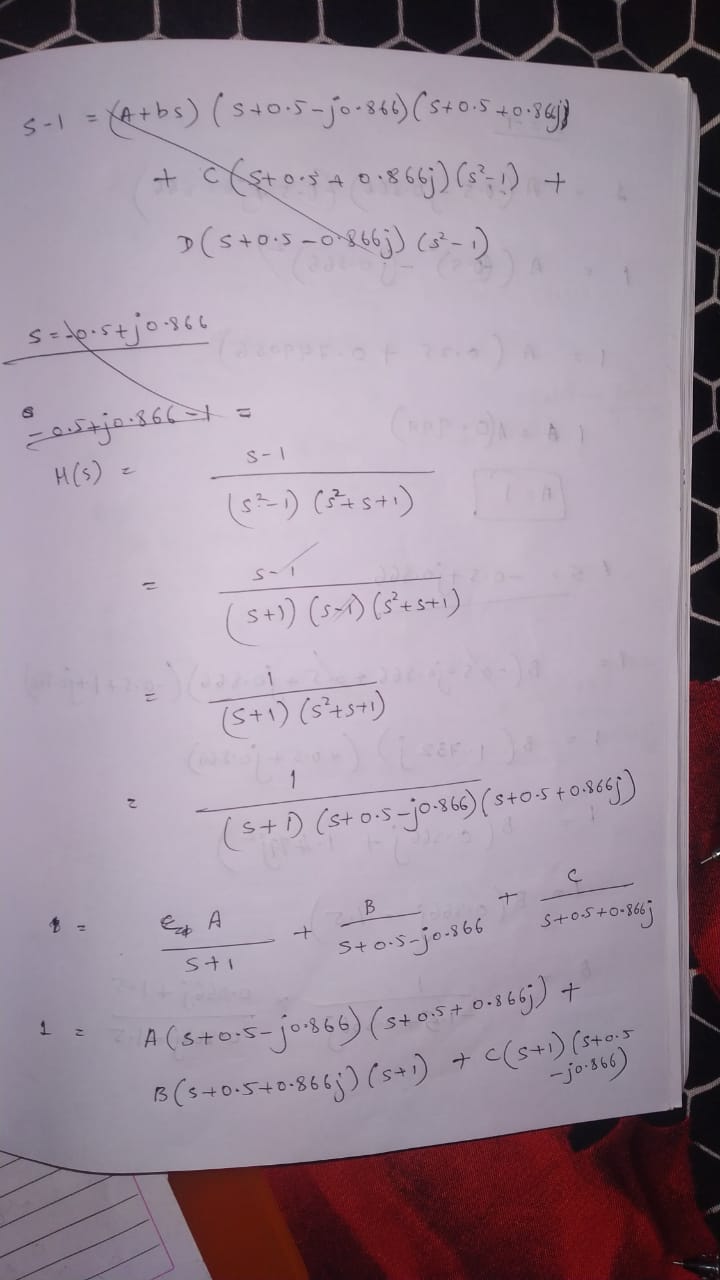 s-1 = (A+bs) (s+0.5-j0.866)(s+0.5+0.866j)
+ C(s+0.5+0.866j)(s²-1) +
D(s+0.5-0.866j)(s²-1)
s = -0.5+j0.866
-0.5+j0.866-1 =
H(s) = s-1
(s²-1) (s²+s+1)
= s-1
(s+1) (s-1) (s²+s+1)
= 1
(s+1) (s²+s+1)
= 1
(s+1) (s+0.5-j0.866) (s+0.5+0.866j)
= A + B + C
s+1 s+0.5-j0.866 s+0.5+0.866j
1 = A(s+0.5-j0.866) (s+0.5+0.866j) +
B(s+0.5+0.866j) (s+1) + C(s+1) (s+0.5
-j0.866)